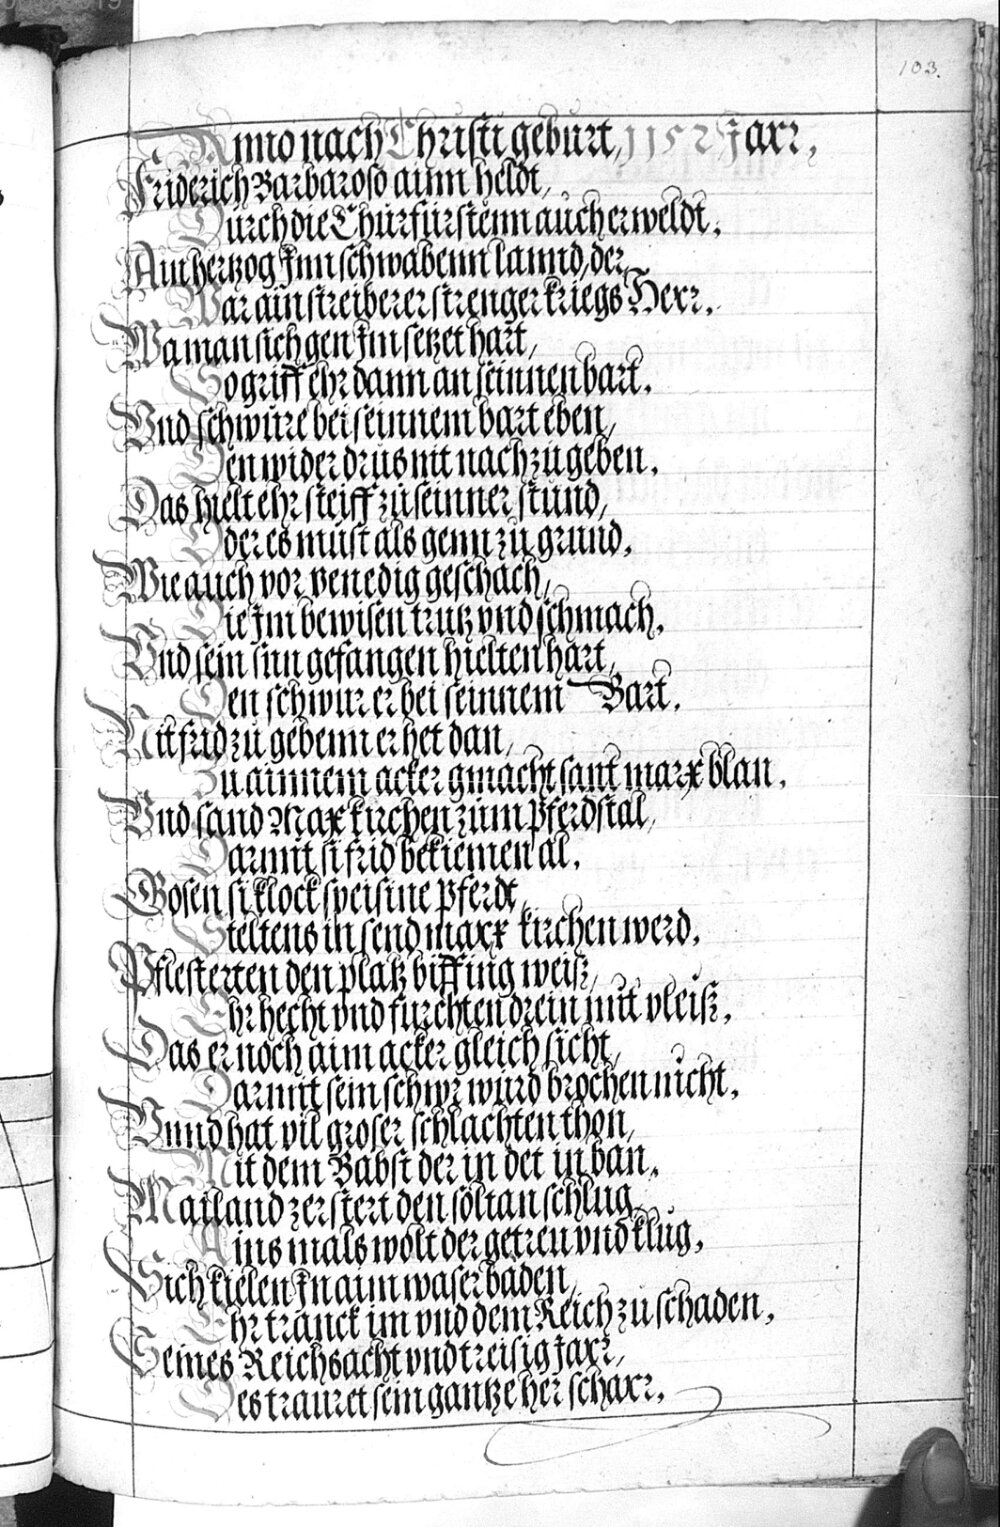 103.
Anno nach Christi geburt, 1152 Jarr,
Friderich Barbaroso ainn heldt,
Durch die Churfürstenn auch erweldt,
Ain hertzog Jnn schwabenn lannd, der
War ain streiberer strenger kriegs Herr,
Wa man sich gen Jm setzet hart,
So griff ehr dann an seinnen bart,
Vnd schwüre bei seinnem bart eben,
Den widerdrus nit nach zu geben,
Das hielt ehr steiff zu seinner stund,
Oder es müst als genn zu grund,
Wie auch vor venedig geschach,
Die Jm bewisen trutz vnd schmach,
Vnd sein sun gefangen hielten hart,
Den schwur er bei seinnem Bart,
Nit frid zu gebenn er het dan,
Zu ainnem acker gmacht sant marx blan,
Vnd sand Max kirchen zum Pferdstal,
Darmit si frid bekiemen al,
Gosen si klockspeisine pferdt,
Steltens in send marx kirchen werd,
Pflesterten den platz biffing weiß,
Ehr hecht vnd furchten drein mit vleiß,
Das er noch aim acker gleich sicht,
Darmit sein schwr wurd brochen nicht,
Vnnd hat vil groser schlachten thon,
Mit dem Babst der in det in ban,
Mailand zerstert den soltan schlug,
Ains mals wolt der getreu vnd klug,
Sich kielen Jn aim waser baden,
Ehr tranck im vnd dem Reich zu schaden,
Seines Reichs acht vnd treisig Jarr,
Des trauret sein gantze her scharr,